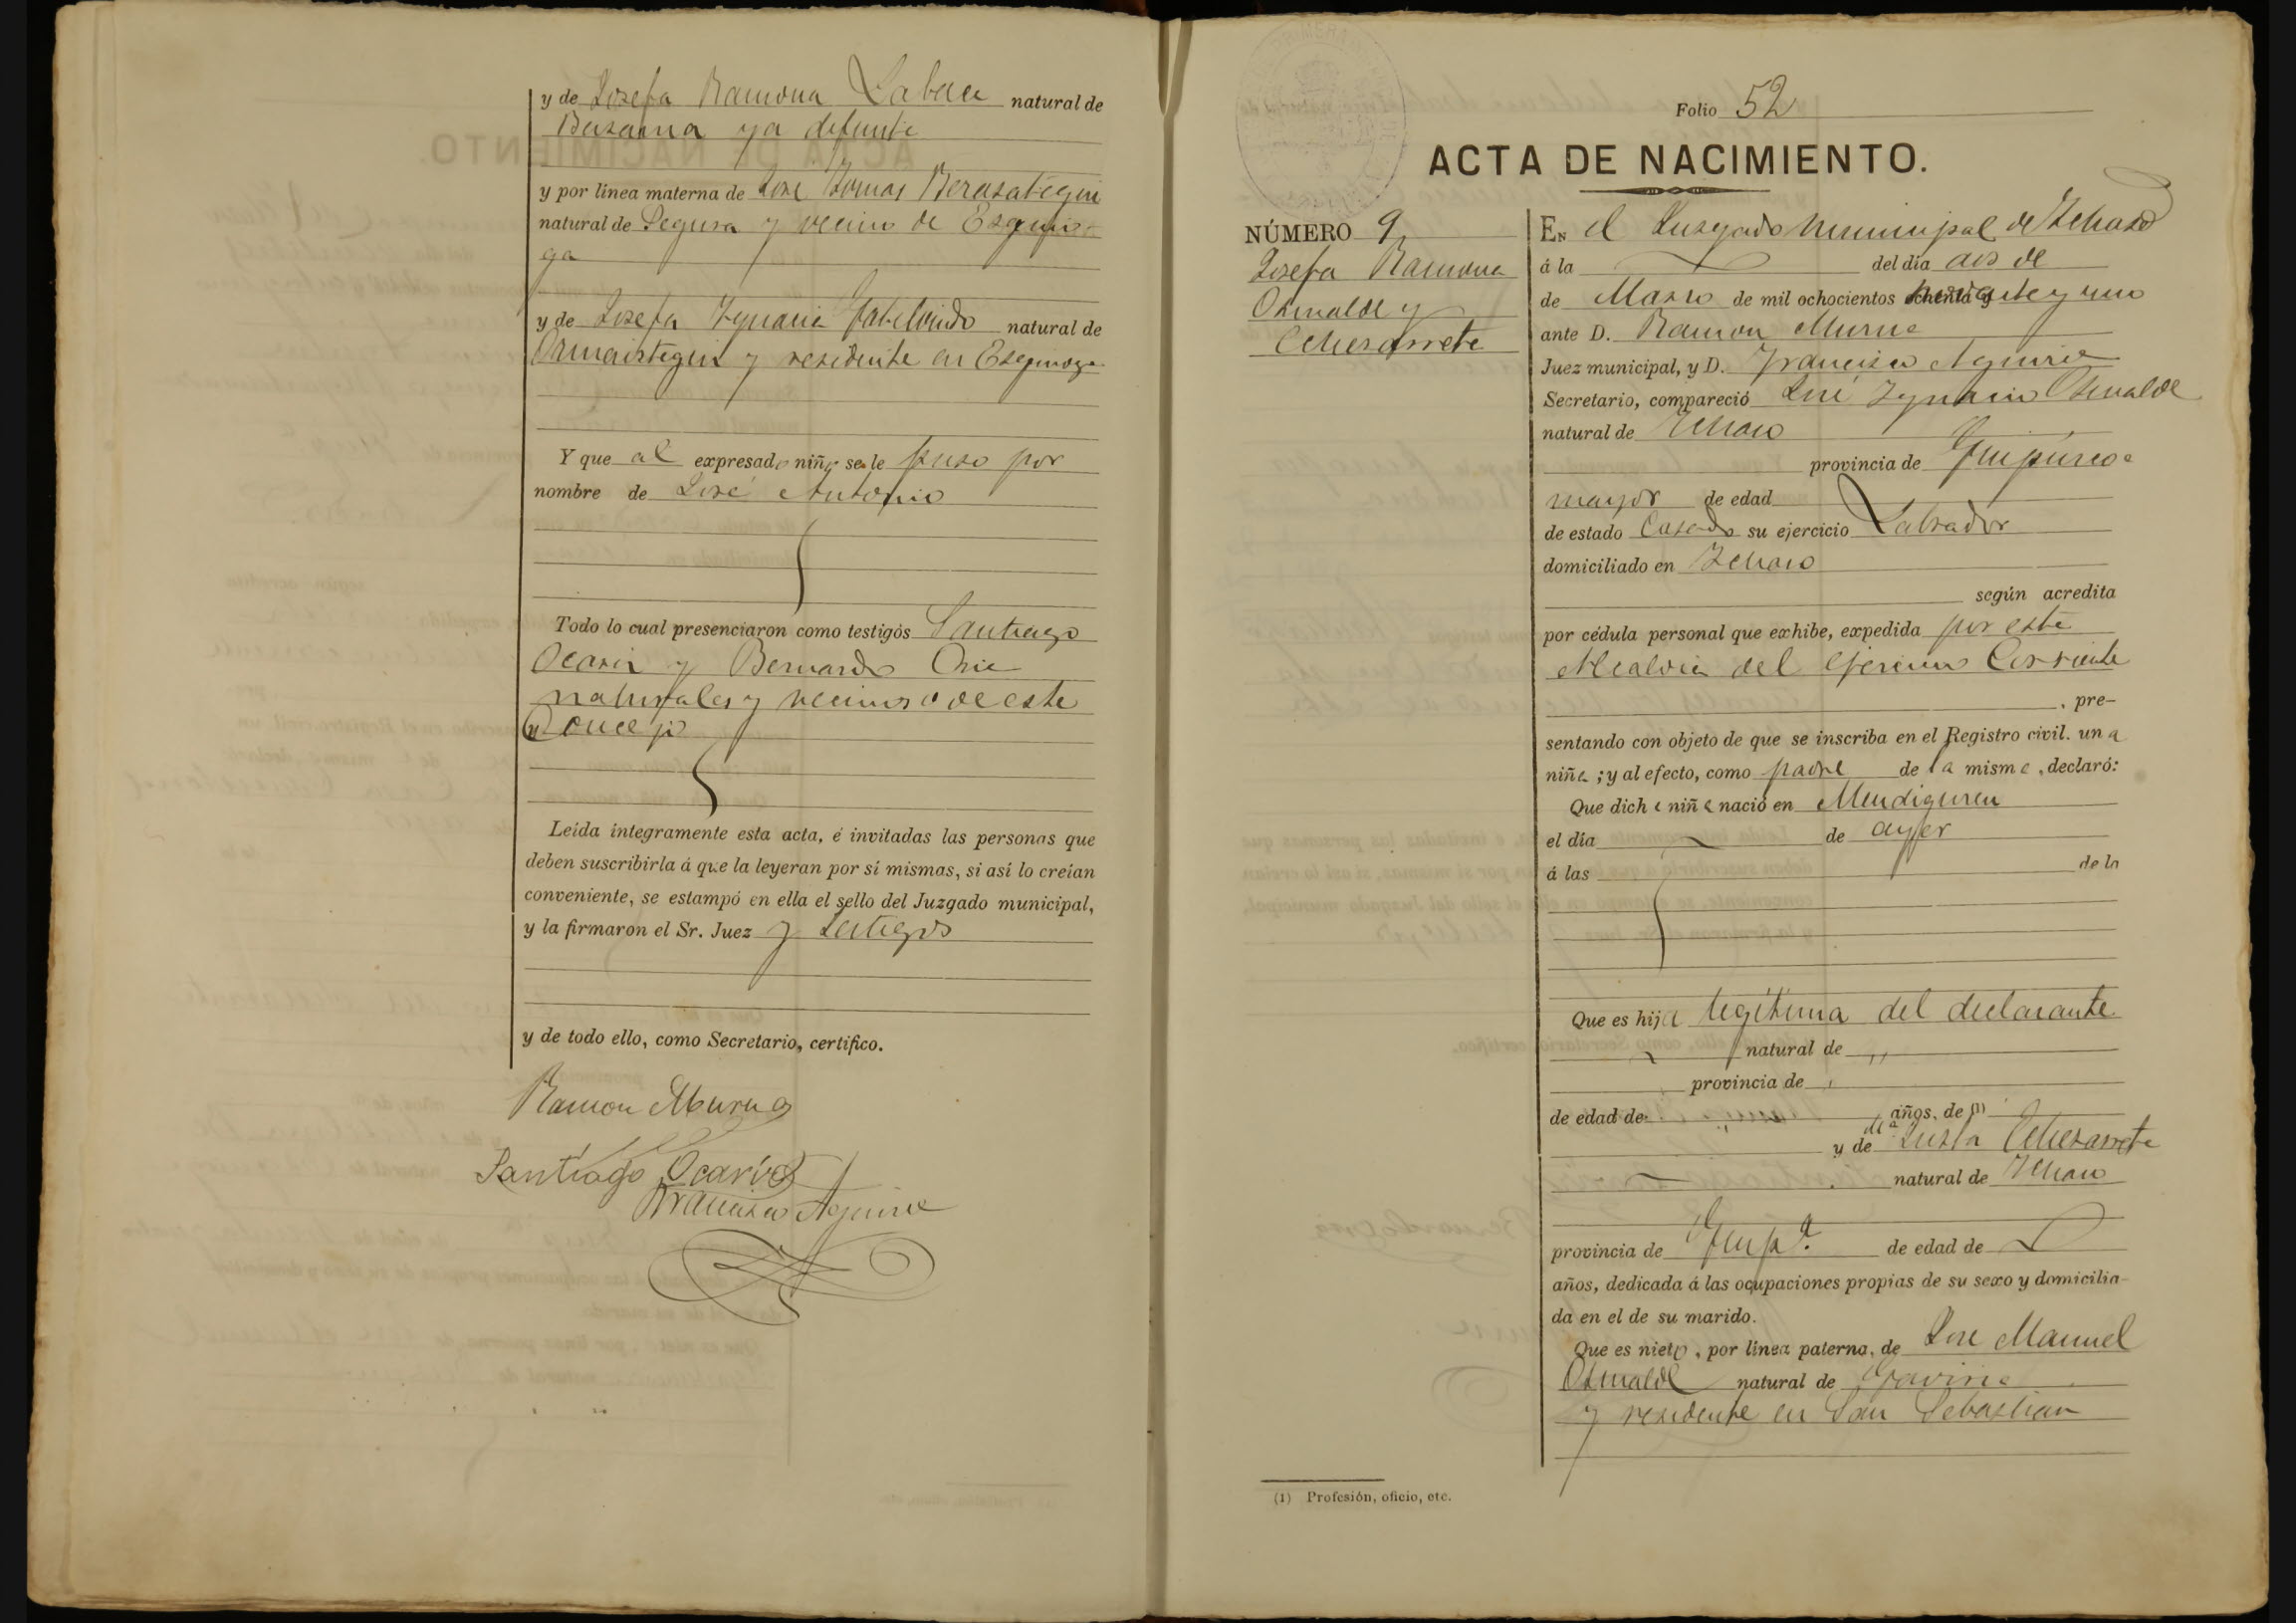 y de Josefa Ramona Labaca natural de
Beasama ya defunta
y por línea materna de José Tomas Berasategui
natural de Segura y vecino de Esquio-
ga
y de Josefa Ygnacia Gabilondo natural de
Ormaistegui y residente en Esquioga
Y que al expresado niño se le puso por
nombre de José Antonio
Todo lo cual presenciaron como testigos Santiago
Ocariz y Bernardo Oria
naturales y vecinos de este
Concejo
Leída íntegramente esta acta, é invitadas las personas que
deben suscribirla á que la leyeran por sí mismas, si así lo creían
conveniente, se estampó en ella el sello del Juzgado municipal,
y la firmaron el Sr. Juez y testigos
y de todo ello, como Secretario, certifico.
Ramon Murua
Santiago Ocariz
Francisco Aguirre
Folio 52
ACTA DE NACIMIENTO.
NÚMERO 9
Josefa Ramona
Osinalde y
Echezarreta
En el Juzgado Municipal de Ichaso
á la del día dos de
de Marzo de mil ochocientos noventa y uno
ante D. Ramon Murua
Juez municipal, y D. Francisco Aguirre
Secretario, compareció José Ygnacio Osinalde
natural de Ichaso
provincia de Guipúzcoa
mayor de edad
de estado Casado su ejercicio Labrador
domiciliado en Ichaso
según acredita
por cédula personal que exhibe, expedida por esta
Alcaldia del ejercicio Corriente
, pre-
sentando con objeto de que se inscriba en el Registro civil. una
niña ; y al efecto, como padre de la misma , declaró:
Que dicha niña nació en Mendiguren
el día de ayer
á las de la
Que es hija legítima del declarante
natural de "
provincia de "
de edad de años, de (1)
y de dª Justa Echezarreta
natural de Ichaso
provincia de Guipª. de edad de
años, dedicada á las ocupaciones propias de su sexo y domicilia-
da en el de su marido.
Que es nieto , por línea paterna, de José Manuel
Osinalde natural de Gaviria
y residente en San Sebastian
(1) Profesión, oficio, etc.